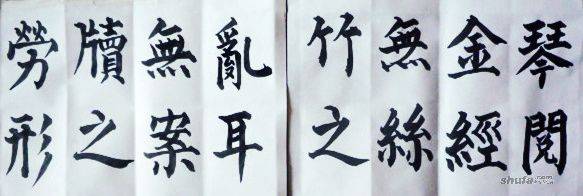 琴閱
金經
無絲
竹之
亂耳
無案
牘之
勞形